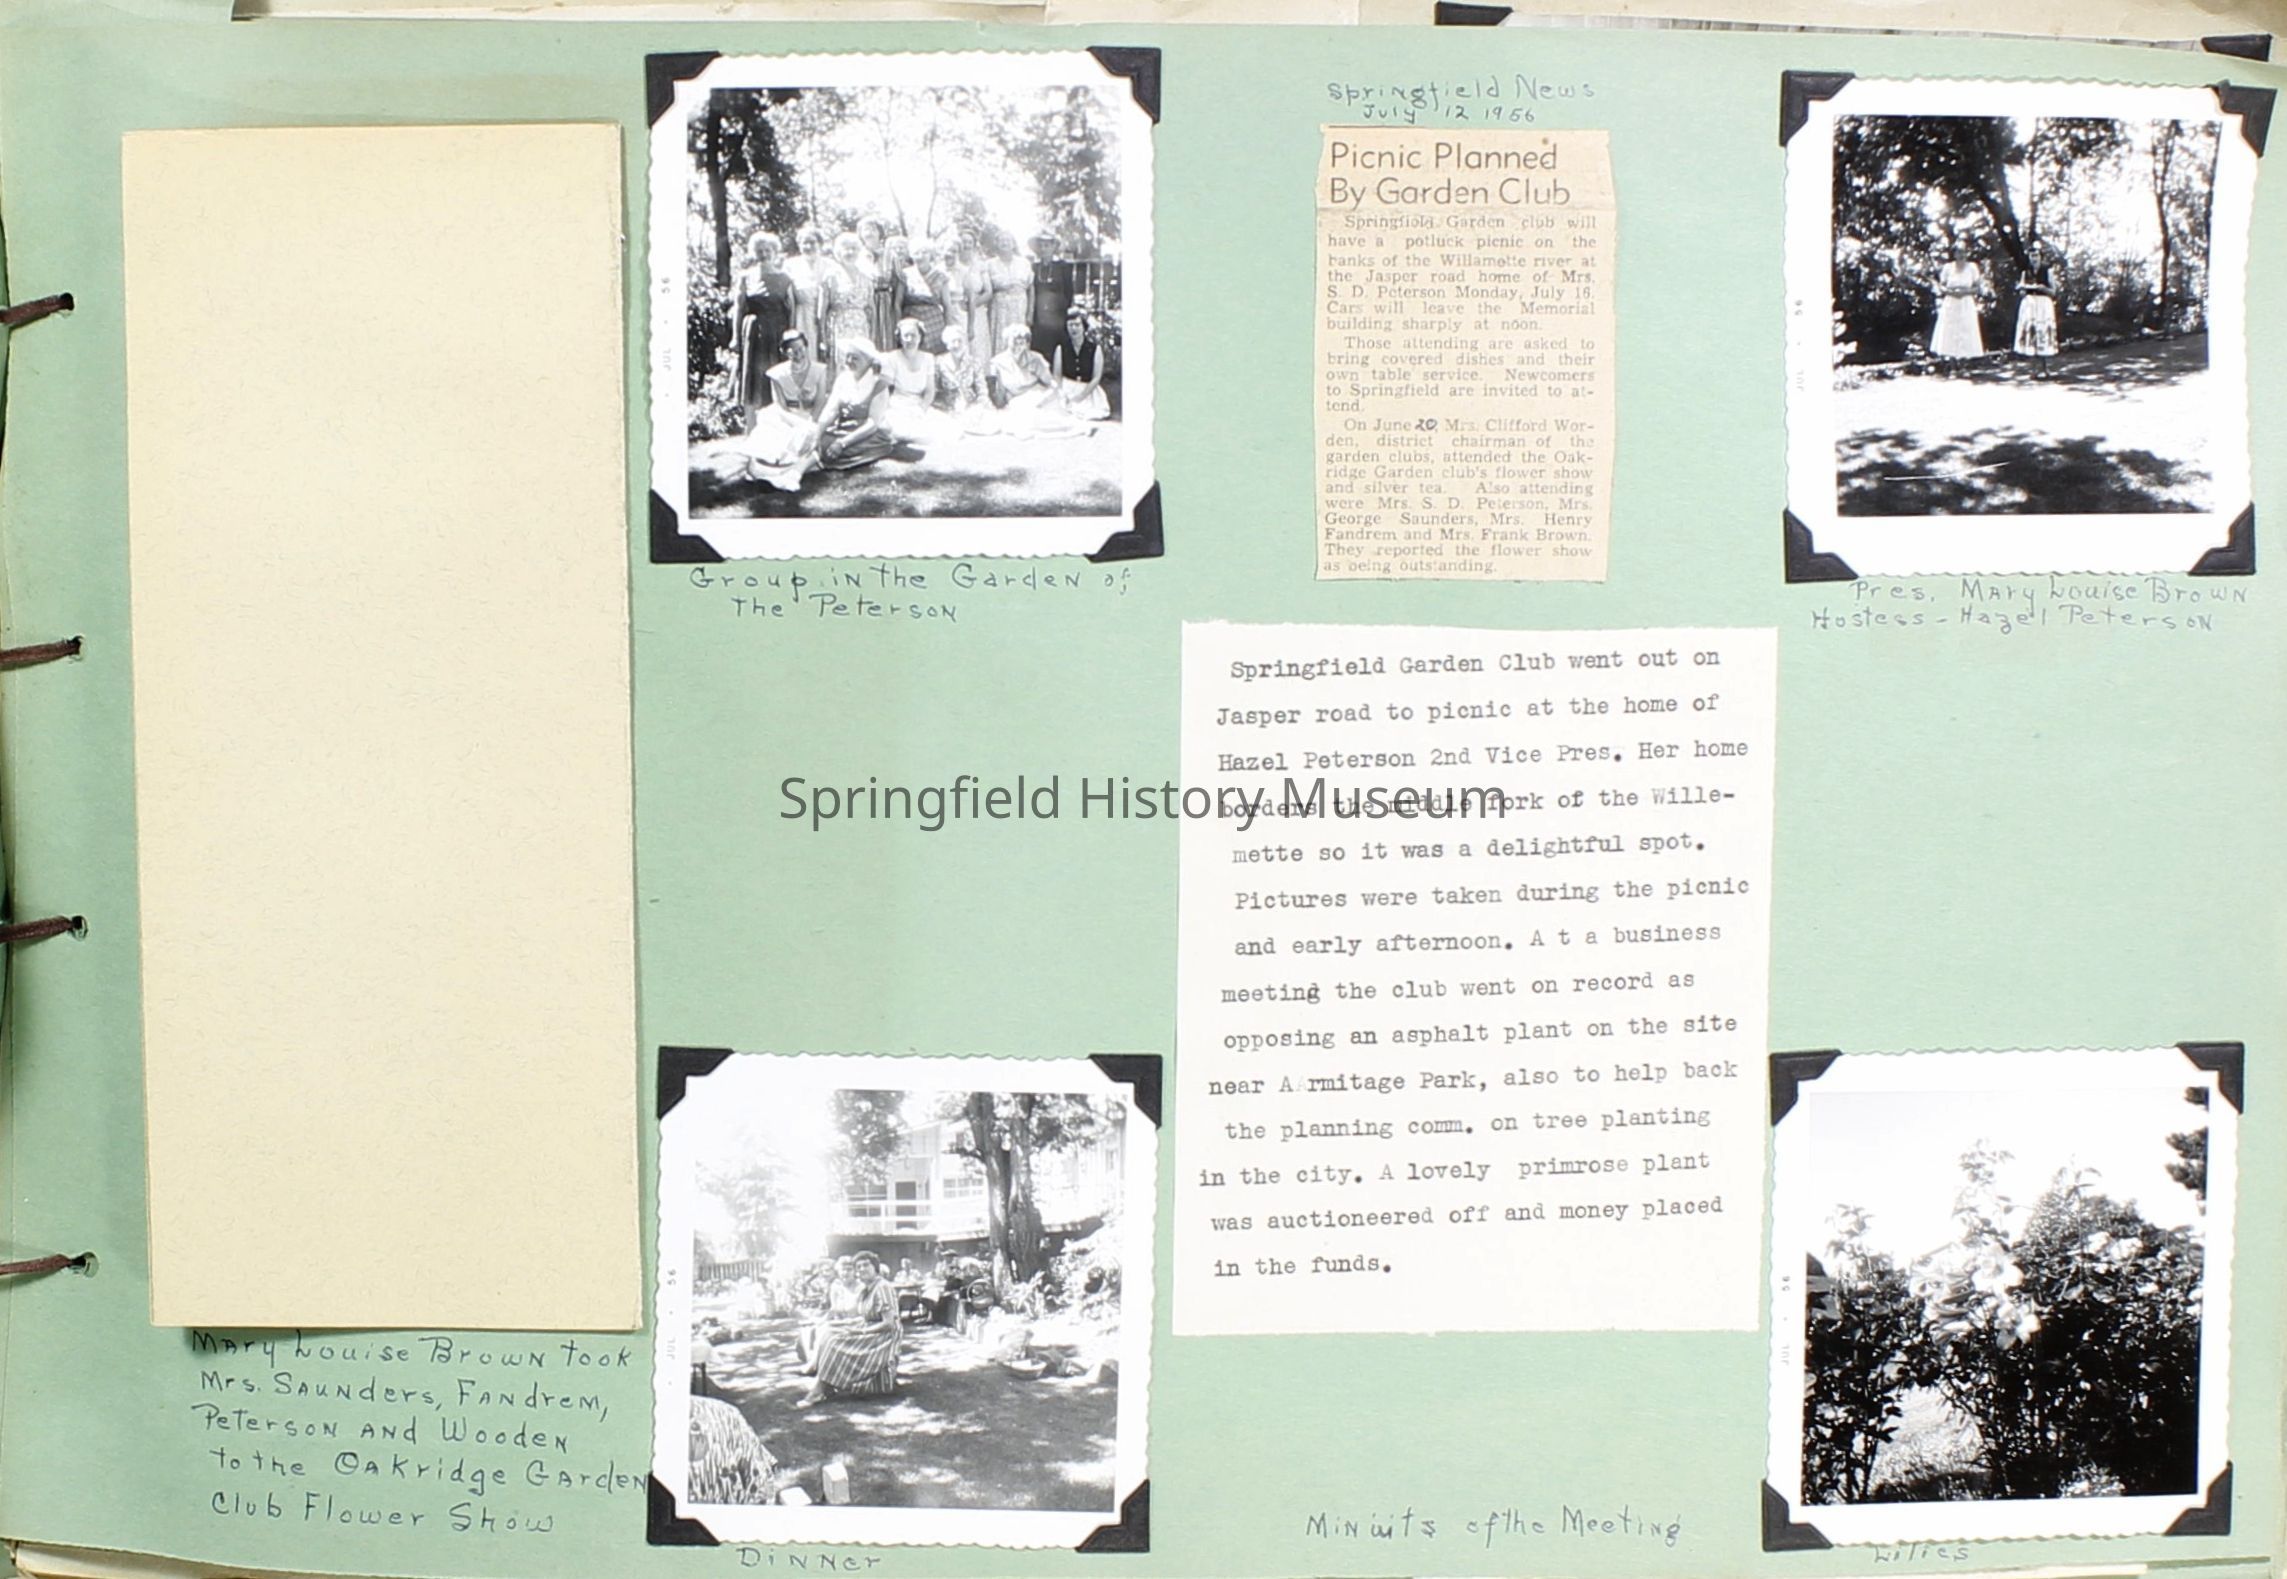 Mary Louise Brown took
Mrs. Saunders, Fandrem,
Peterson and Wooden
to the Oakridge Garden
Club Flower Show
JUL • 56
Group in the Garden of
The Peterson
JUL • 56
Dinner
Springfield News
July 12 1956
Picnic Planned
By Garden Club
Springfield Garden club will
have a potluck picnic on the
banks of the Willamette river at
the Jasper road home of Mrs.
S. D. Peterson Monday, July 16.
Cars will leave the Memorial
building sharply at noon.
Those attending are asked to
bring covered dishes and their
own table service. Newcomers
to Springfield are invited to at-
tend.
On June 20, Mrs. Clifford Wor-
den, district chairman of the
garden clubs, attended the Oak-
ridge Garden club's flower show
and silver tea. Also attending
were Mrs. S. D. Peterson, Mrs.
George Saunders, Mrs. Henry
Fandrem and Mrs. Frank Brown.
They reported the flower show
as being outstanding.
Springfield Garden Club went out on
Jasper road to picnic at the home of
Hazel Peterson 2nd Vice Pres. Her home
borders the middle fork of the Wille-
mette so it was a delightful spot.
Pictures were taken during the picnic
and early afternoon. A t a business
meeting the club went on record as
opposing an asphalt plant on the site
near A rmitage Park, also to help back
the planning comm. on tree planting
in the city. A lovely primrose plant
was auctioneered off and money placed
in the funds.
Minuits of the Meeting
JUL • 56
Pres. Mary Louise Brown
Hostess - Hazel Peterson
JUL • 56
Lilies
Springfield History Museum